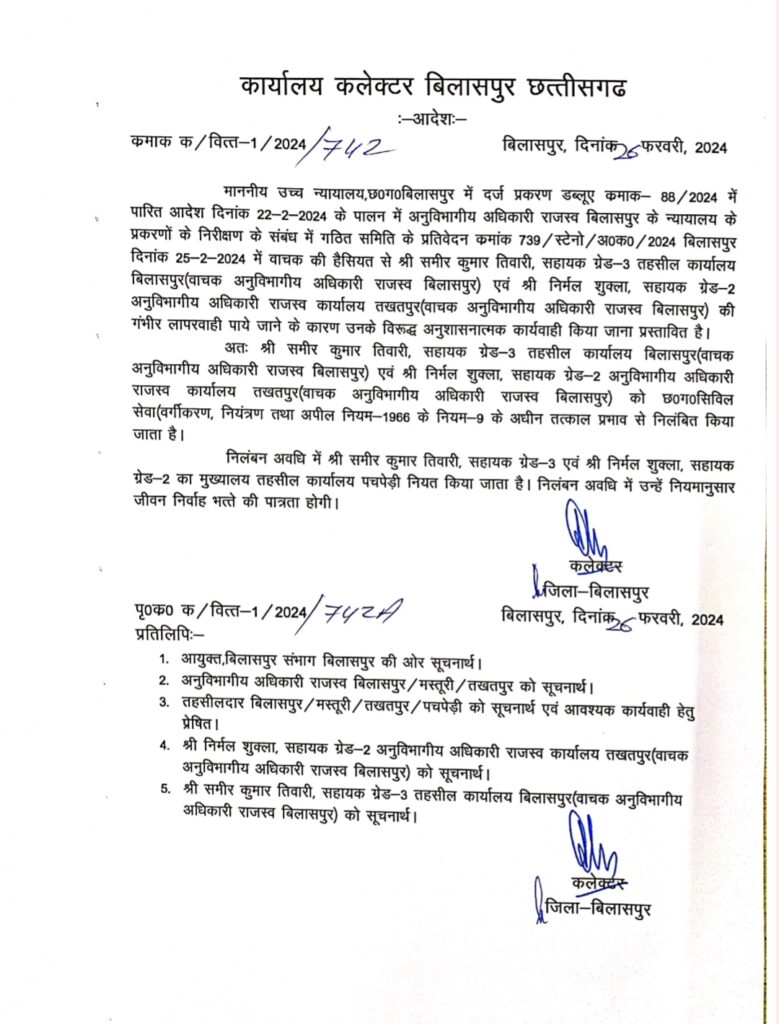 कार्यालय कलेक्टर बिलासपुर छत्तीसगढ
:–आदेशः–
कमाक क/वित्त–1/2024/742 बिलासपुर, दिनांक 26 फरवरी, 2024
माननीय उच्च न्यायालय,छ0ग0बिलासपुर में दर्ज प्रकरण डब्लूए कमाक– 88/2024 में
पारित आदेश दिनांक 22-2-2024 के पालन में अनुविभागीय अधिकारी राजस्व बिलासपुर के न्यायालय के
प्रकरणों के निरीक्षण के संबंध में गठित समिति के प्रतिवेदन कमांक 739/स्टेनो/अ0क0/2024 बिलासपुर
दिनांक 25-2-2024 में वाचक की हैसियत से श्री समीर कुमार तिवारी, सहायक ग्रेड–3 तहसील कार्यालय
बिलासपुर(वाचक अनुविभागीय अधिकारी राजस्व बिलासपुर) एवं श्री निर्मल शुक्ला, सहायक ग्रेड–2
अनुविभागीय अधिकारी राजस्व कार्यालय तखतपुर(वाचक अनुविभागीय अधिकारी राजस्व बिलासपुर) की
गंभीर लापरवाही पाये जाने के कारण उनके विरूद्ध अनुशासनात्मक कार्यवाही किया जाना प्रस्तावित है।
अतः श्री समीर कुमार तिवारी, सहायक ग्रेड–3 तहसील कार्यालय बिलासपुर(वाचक
अनुविभागीय अधिकारी राजस्व बिलासपुर) एवं श्री निर्मल शुक्ला, सहायक ग्रेड–2 अनुविभागीय अधिकारी
राजस्व कार्यालय तखतपुर(वाचक अनुविभागीय अधिकारी राजस्व बिलासपुर) को छ0ग0सिविल
सेवा(वर्गीकरण, नियंत्रण तथा अपील नियम–1966 के नियम–9 के अधीन तत्काल प्रभाव से निलंबित किया
जाता है।
निलंबन अवधि में श्री समीर कुमार तिवारी, सहायक ग्रेड–3 एवं श्री निर्मल शुक्ला, सहायक
ग्रेड–2 का मुख्यालय तहसील कार्यालय पचपेड़ी नियत किया जाता है। निलंबन अवधि में उन्हें नियमानुसार
जीवन निर्वाह भत्ते की पात्रता होगी।
कलेक्टर
जिला–बिलासपुर
पृ0क0 क/वित्त–1/2024/742A बिलासपुर, दिनांक 26 फरवरी, 2024
प्रतिलिपिः–
1. आयुक्त,बिलासपुर संभाग बिलासपुर की ओर सूचनार्थ।
2. अनुविभागीय अधिकारी राजस्व बिलासपुर/मस्तूरी/तखतपुर को सूचनार्थ।
3. तहसीलदार बिलासपुर/मस्तूरी/तखतपुर/पचपेड़ी को सूचनार्थ एवं आवश्यक कार्यवाही हेतु
प्रेषित।
4. श्री निर्मल शुक्ला, सहायक ग्रेड–2 अनुविभागीय अधिकारी राजस्व कार्यालय तखतपुर(वाचक
अनुविभागीय अधिकारी राजस्व बिलासपुर) को सूचनार्थ।
5. श्री समीर कुमार तिवारी, सहायक ग्रेड–3 तहसील कार्यालय बिलासपुर(वाचक अनुविभागीय
अधिकारी राजस्व बिलासपुर) को सूचनार्थ।
कलेक्टर
जिला–बिलासपुर